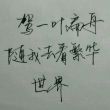 驾一叶扁舟
随我去看繁华
世界